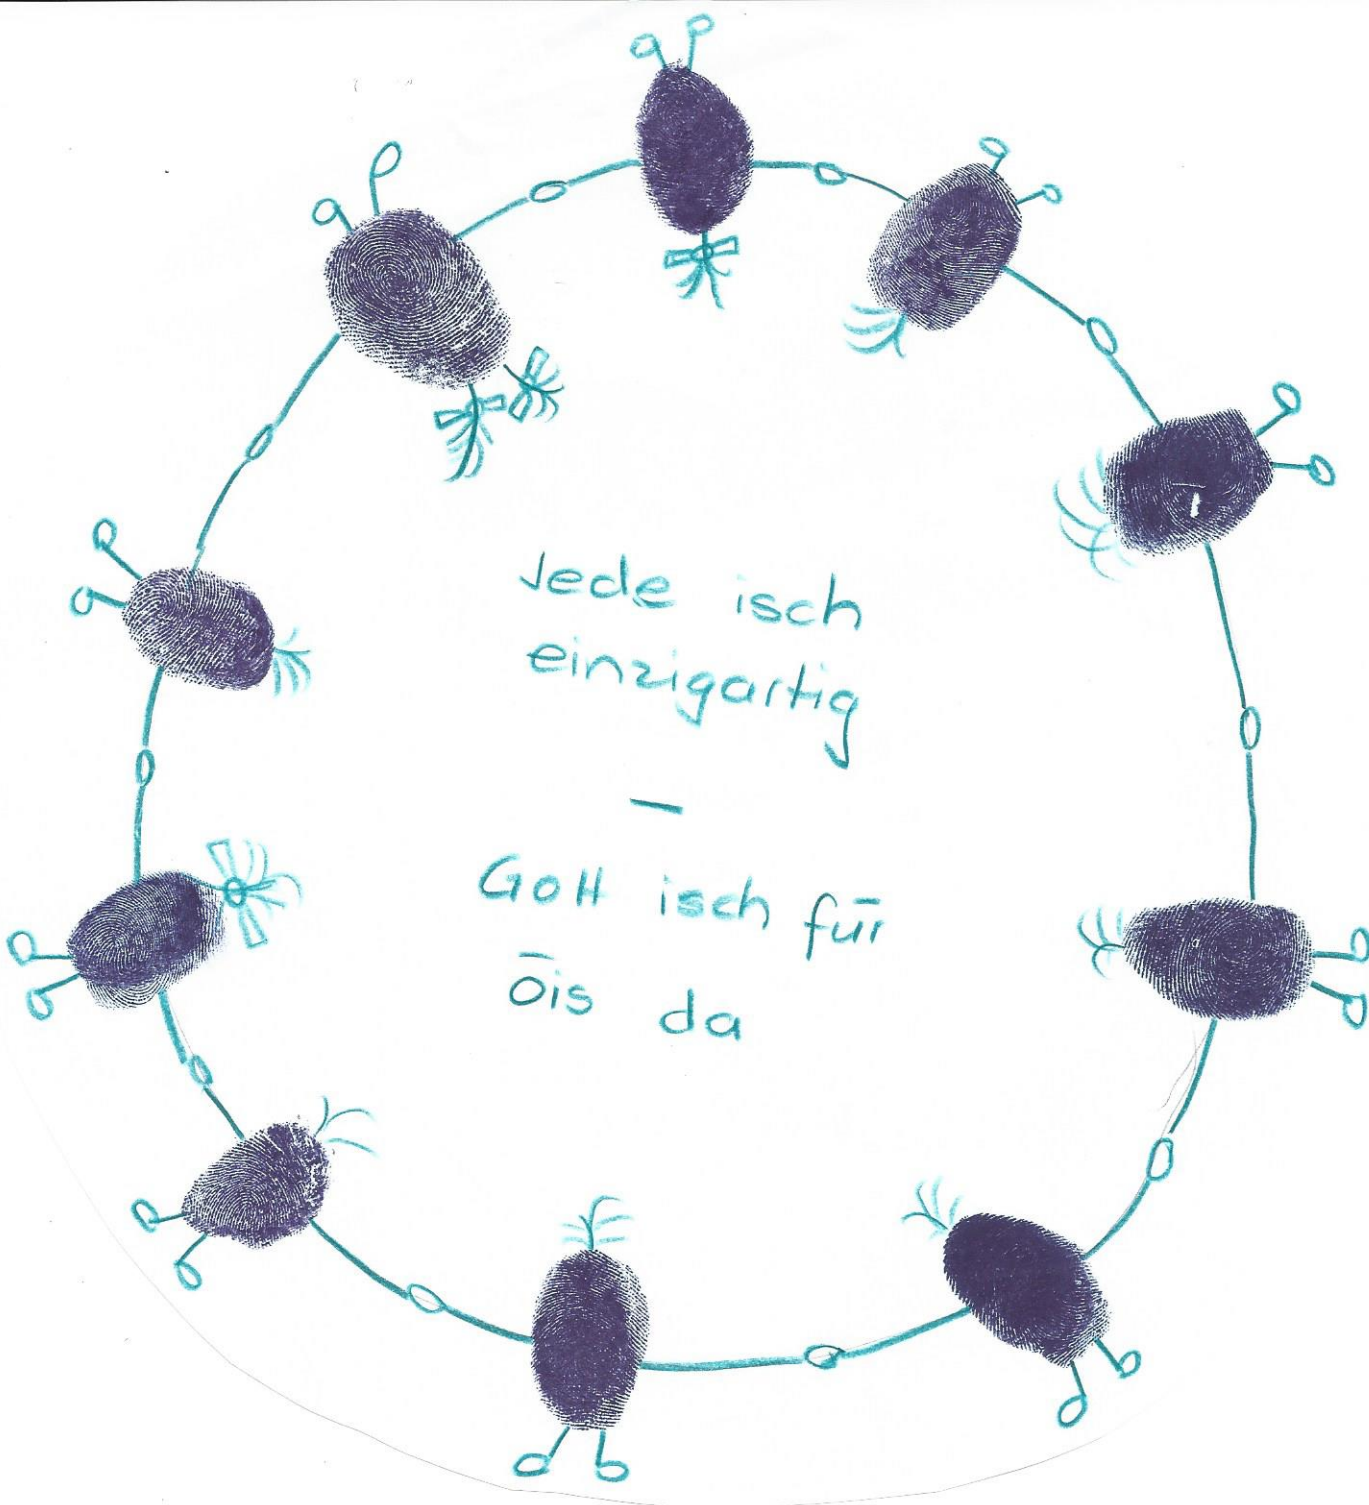 Jede isch
einzigartig
–
Gott isch für
öis da